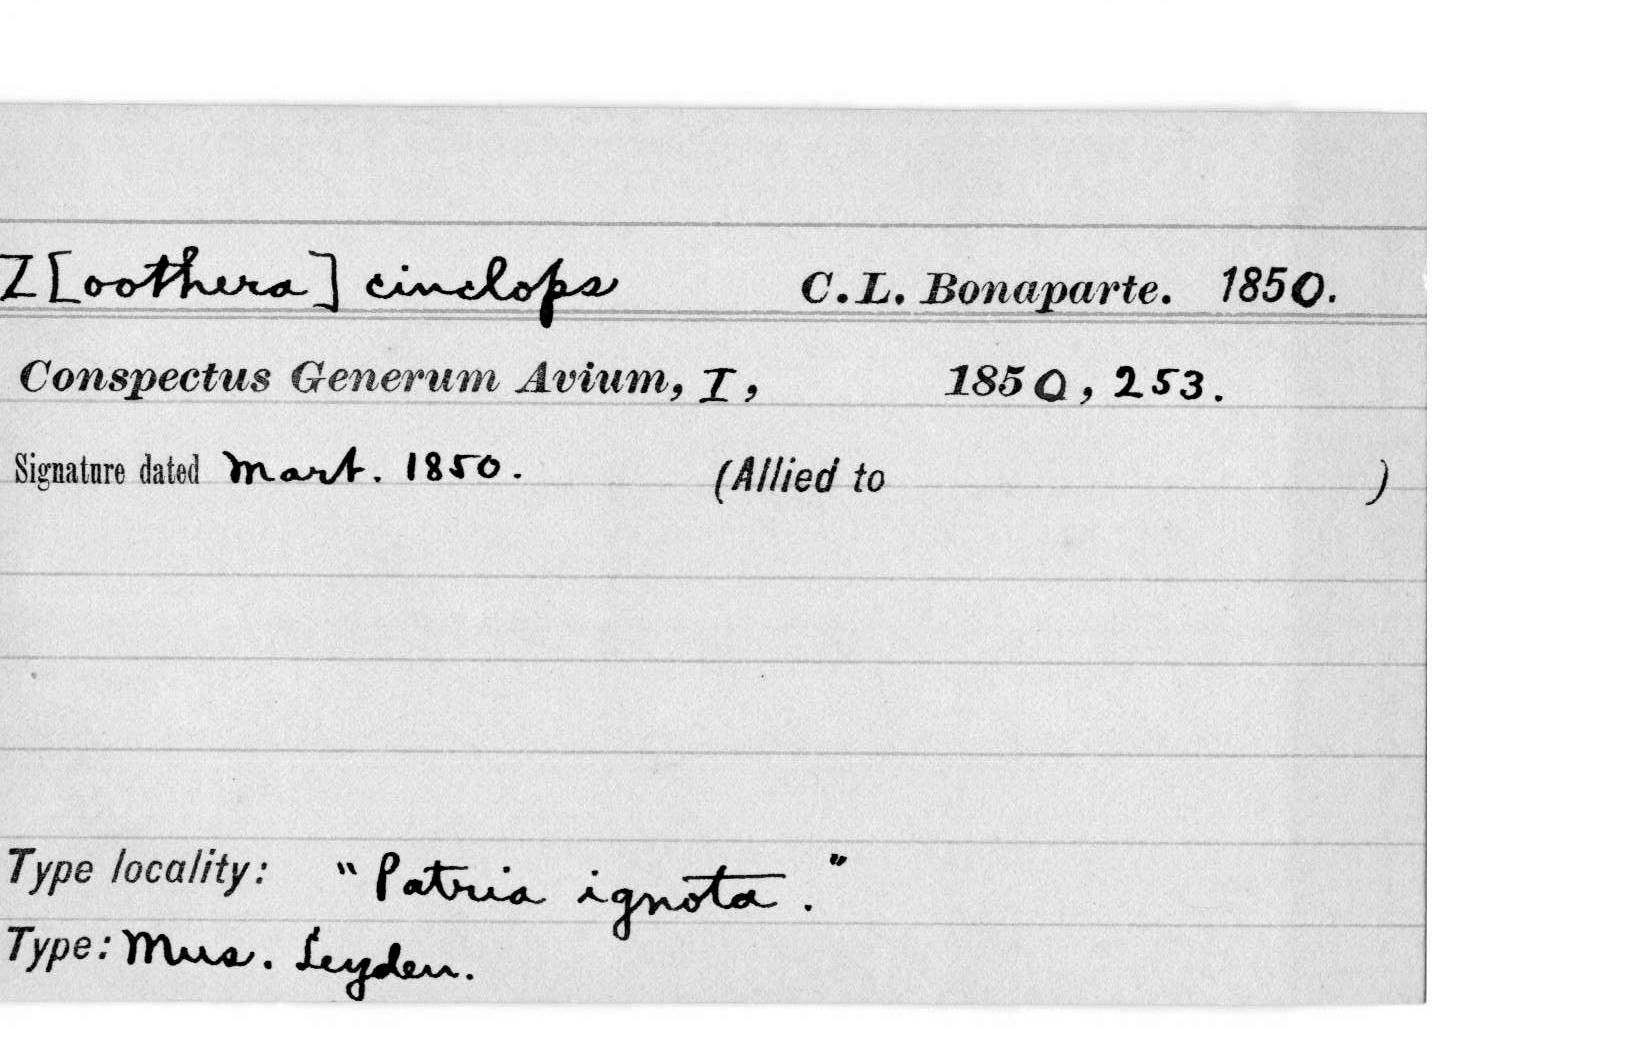 Z[oothera] cinclops C.L. Bonaparte. 1850.
Conspectus Generum Avium, I, 1850, 253.
Signature dated Mart. 1850. (Allied to )
Type locality: "Patria ignota."
Type: Mus. Leyden.